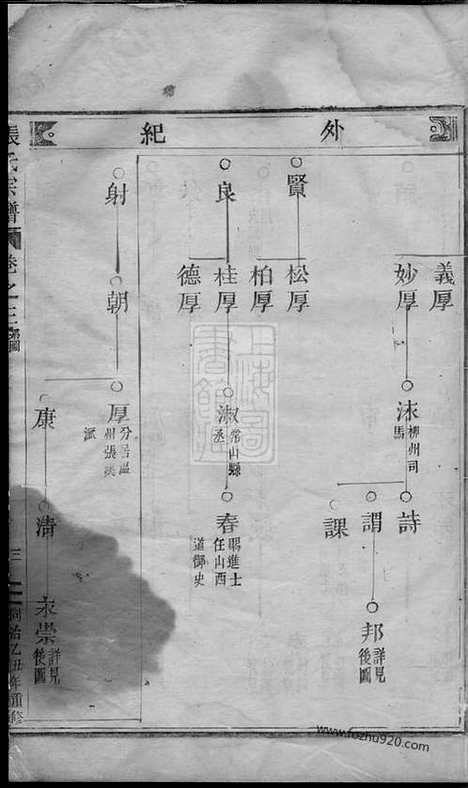 外紀
義厚
妙厚
沬柳州司馬
詩
謂
課
邦詳見後圖
賢
松厚
柏厚
良
桂厚
德厚
淑常山縣丞
春賜進士任山西道御史
射
朝
厚分居溫州張溪派
康
清
永崇詳見後圖
張氏宗譜
卷之三
三
同治乙丑年重修
上海圖書館藏
www.fozhu920.com